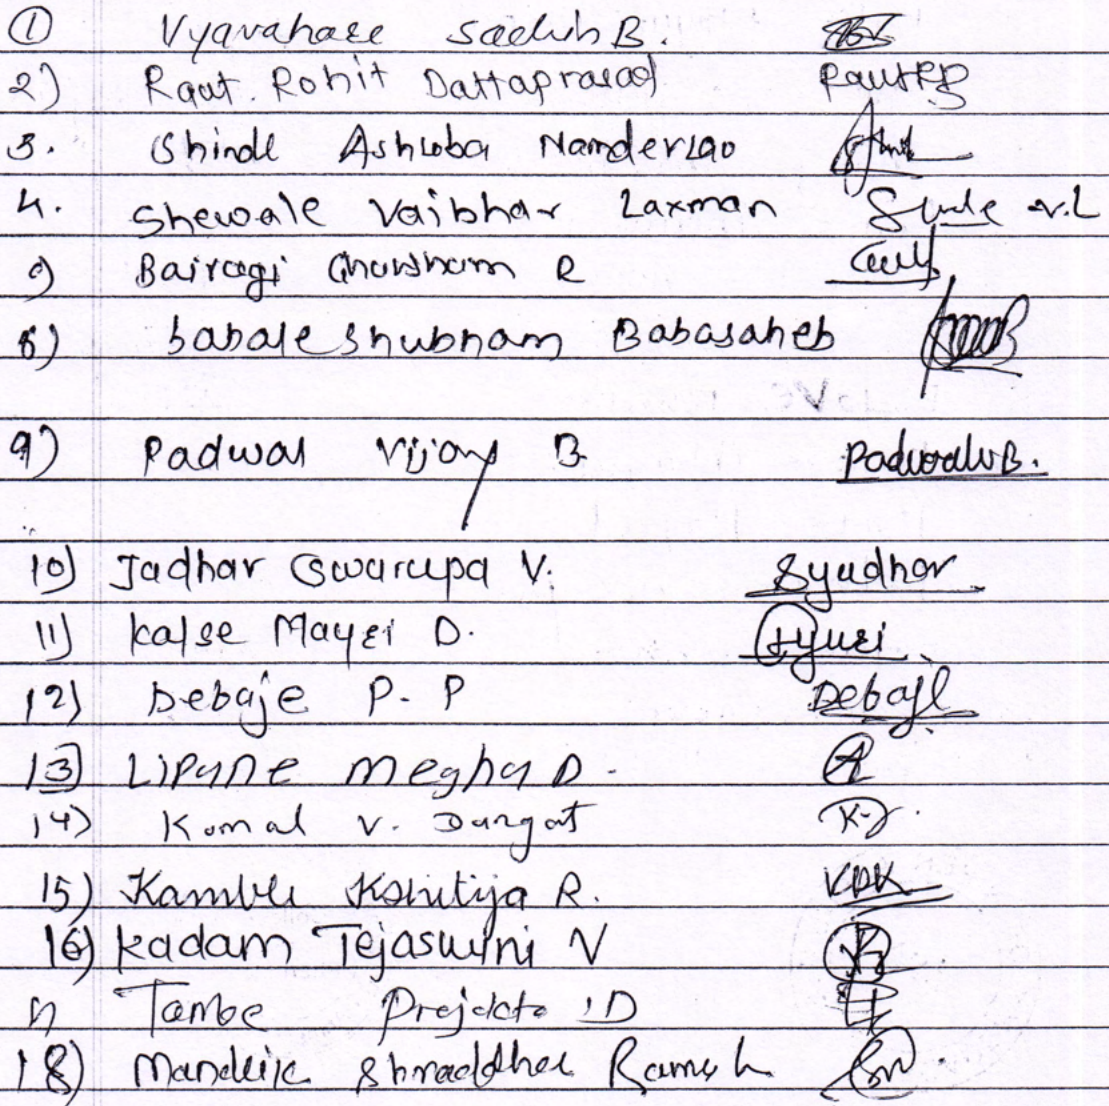 ① Vyavahare B.
2) Raut. Rohit Dattaprasad RautRD
3. Shinde Ashroba Namdevrao
4. Shewale Vaibhav Laxman v.L
Bairagi R
8) Sabale Shubham Babasaheb
9) Padwal Vijay B Padwalv B.
10) Jadhav Swarupa V. Syadhav
11) Kalse Mayuri D.
12) Debaje P. P Debaje
13) Lipane Megha D.
14) Komal V. Dangat K.
15) Kamble Kshitija R.
16) Kadam Tejaswini V
Tambe Prajakta D
18) Mandlik Shraddha Ramesh